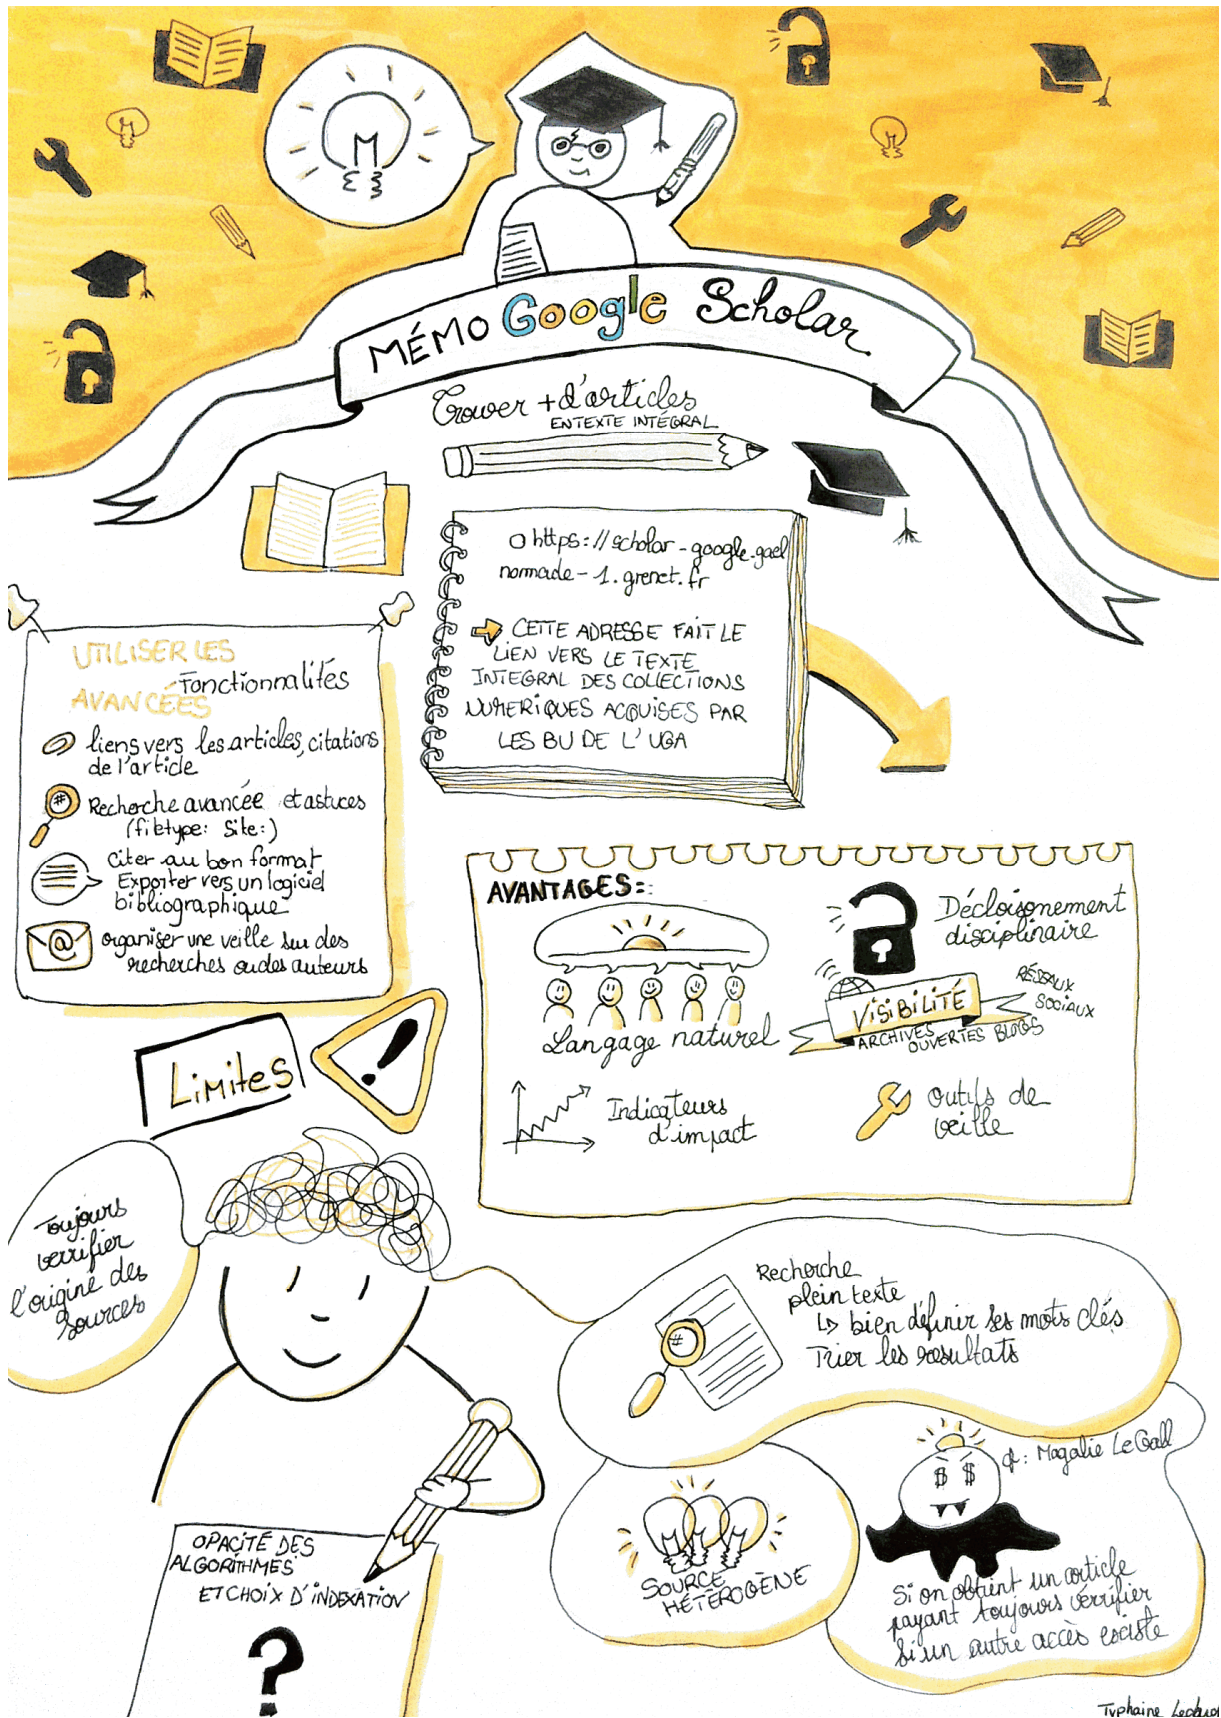 MÉMO Google Scholar
Trouver + d'articles
EN TEXTE INTÉGRAL
https://scholar-google.gael
nomade-1.grenet.fr
CETTE ADRESSE FAIT LE
LIEN VERS LE TEXTE
INTEGRAL DES COLLECTIONS
NUMERIQUES ACQUISES PAR
LES BU DE L'UGA
UTILISER LES
Fonctionnalités
AVANCÉES
liens vers les articles, citations
de l'article
Recherche avancée et astuces
(filetype: Site:)
Citer au bon format
Exporter vers un logiciel
bibliographique
organiser une veille sur des
recherches ou des auteurs
AVANTAGES:
Langage naturel
Décloisonement
disciplinaire
VISIBILITÉ
RÉSEAUX
SOCIAUX
ARCHIVES
OUVERTES BLOGS
Indicateurs
d'impact
outils de
veille
Limites
!
Toujours
verrifier
l'origine des
sources
Recherche
plein texte
↳ bien définir ses mots clés
Trier les resultats
OPACITÉ DES
ALGORITHMES
ET CHOIX D'INDEXATION
?
SOURCE
HÉTÈROGÈNE
$ $
cf: Magalie Le Gall
Si on obtient un article
payant toujours vérrifier
si un autre accès existe
Typhaine